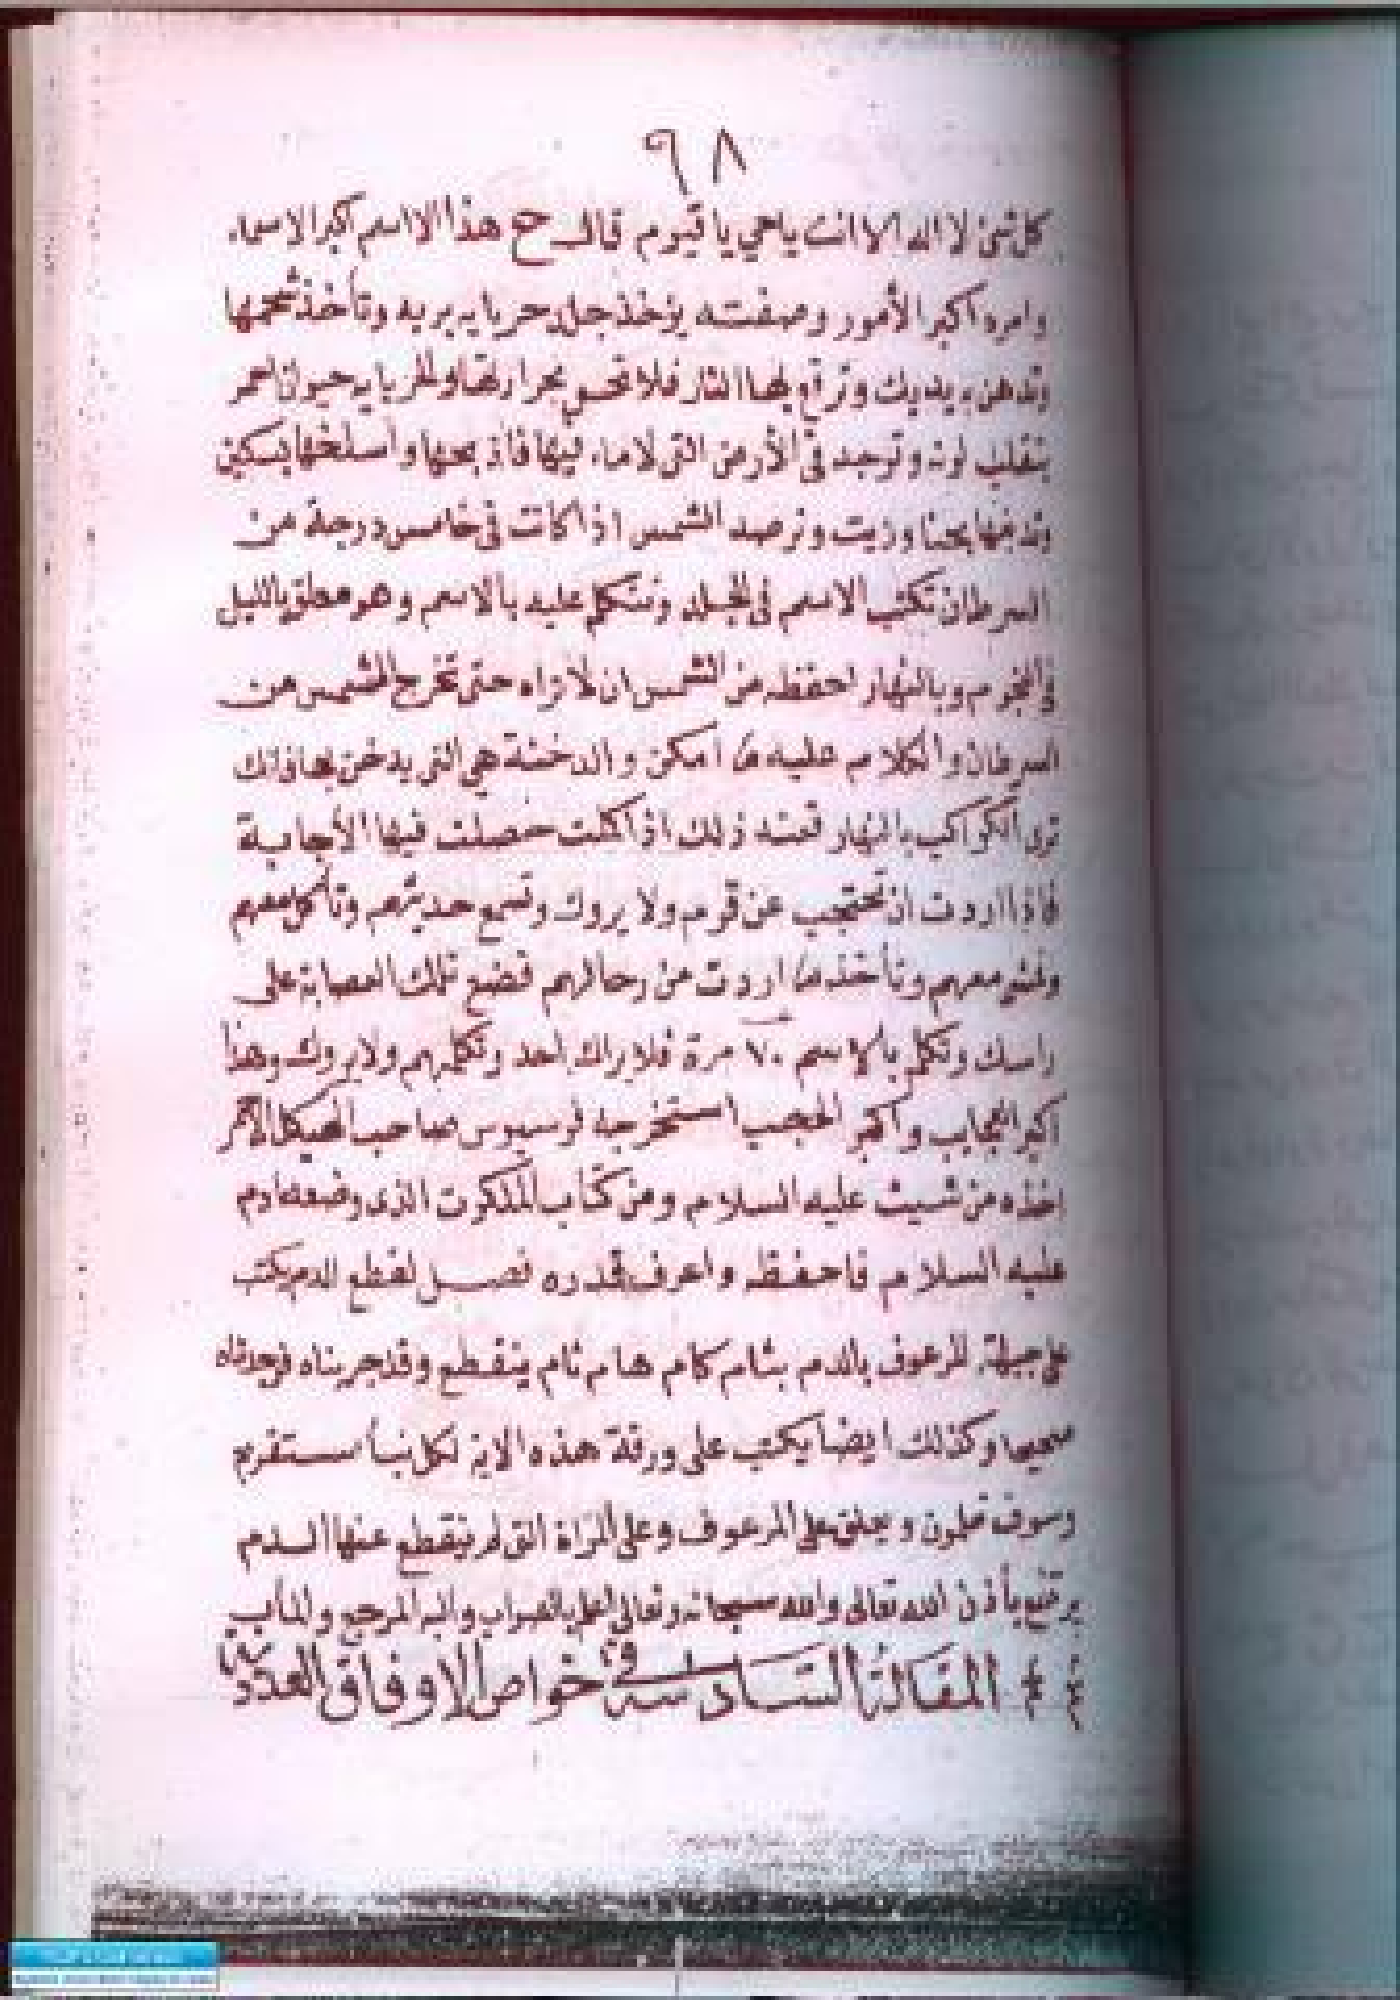 ٩٨
كل شئ لا اله الا انت يا حي يا قيوم قال هذا الاسم اكبر الاسماء
وامره اكبر الأمور وصفته يؤخذ جلد حربايه بريه وتأخذ شحمها
وتدهن يديك وترفع بها النار فلا تحس بحرارتها والحربايه حيوان احمر
يتقلب لونه وتوجد في الأرض التي لا ماء فيها فاذبحها واسلخها بسكين
وادبغها بحنا وزيت وترصد الشمس اذا كانت في خامس درجة من
السرطان تكتب الاسم في الجلد وتتكلم عليه بالاسم وهو معلق بالليل
في النجوم وبالنهار احفظه من الشمس ان لا تراه حتى تخرج الشمس من
السرطان والكلام عليه ما امكن والدخنة هي التي يدخن بها فانك
ترى الكواكب بالنهار فعند ذلك اذا كملت حصلت فيها الأجابة
فاذا اردت ان تحتجب عن قوم ولا يروك وتسمع حديثهم وتأكل معهم
وتمشي معهم وتأخذ ما اردت من رحالهم فضع تلك العصابة على
راسك وتكلم بالاسم ٧٠ مرة فلا يراك احد وتكلمهم ولا يروك وهذا
اكبر العجايب واكبر الحجب استخرجه صاحب الهيكل الاحمر
اخذه من شيث عليه السلام ومن كتاب الملكوت الذي وضعه ادم
عليه السلام فاحفظه واعرف قدره فصل لقطع الدم يكتب
على جبهة المرعوف بالدم بشام كام هام ثام ينقطع وقد جربناه فوجدناه
صحيحا وكذلك ايضا يكتب على ورقة هذه الاية لكل نبأ مستقر
وسوف تعلمون ويعلق على المرعوف وعلى المراة التي لم ينقطع عنها الدم
يرتفع بأذن الله تعالى والله سبحانه وتعالى اعلم بالصواب واليه المرجع والمأب
المقالة السادسة في خواص الاوفاق العددية